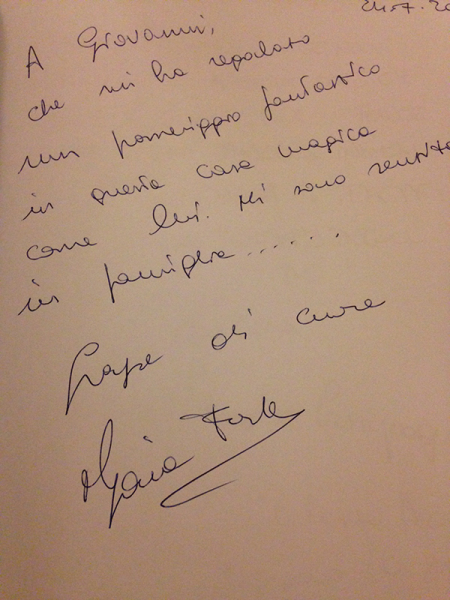 24.07.20
A Giovanni,
che mi ha regalato
un pomeriggio fantastico
in questa casa magica
come lui. Mi sono sentita
in famiglia......
Grazie di cuore